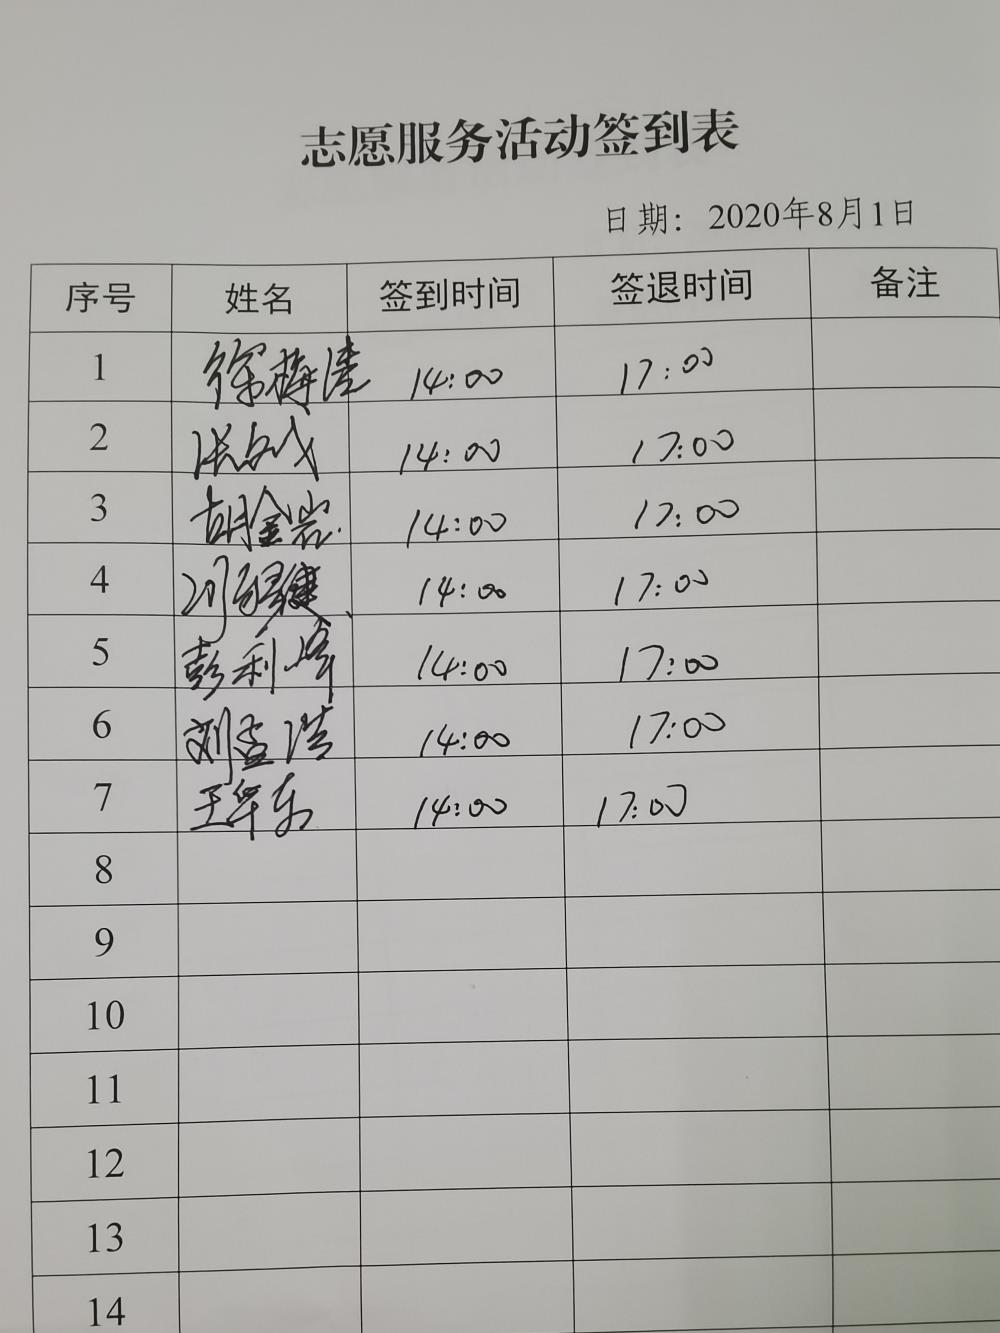 志愿服务活动签到表
日期：2020年8月1日
序号 姓名 签到时间 签退时间 备注
1 徐梅 14:00 17:00
2 14:00 17:00
3 胡金岩 14:00 17:00
4 14:00 17:00
5 彭利峰 14:00 17:00
6 刘孟浩 14:00 17:00
7 王军东 14:00 17:00
8
9
10
11
12
13
14